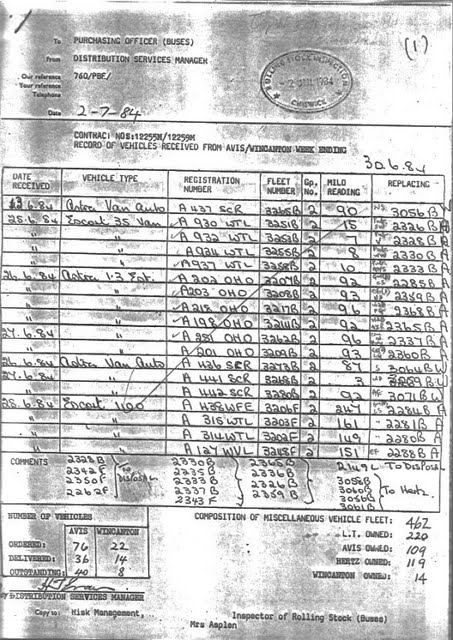 (1)
To PURCHASING OFFICER (BUSES)
From DISTRIBUTION SERVICES MANAGER
Our reference 760/PBF/
Your reference
Telephone
Date 2-7-84
ROLLING STOCK INSPECTOR
CHISWICK
CONTRACT NOS:12255M/12259M
RECORD OF VEHICLES RECEIVED FROM AVIS/WINCANTON WEEK ENDING
30.6.84
DATE RECEIVED VEHICLE TYPE REGISTRATION NUMBER FLEET NUMBER Gp. No. MILO READING REPLACING
Astra Van Auto A 437 SCR 3265B 2 90 3056B
25.6.84 Escort 35 Van A 930 WTL 3251B 2 15 2326B A
" " A 932 WTL 3253B 2 7 2328B A
" " A934 WTL 3255B 2 8 2330B A
" " A937 WTL 3258B 2 10 2333B A
26.6.84 Astra 1.3 Est. A202 OHO 3207B 2 92 2285B A
" " A203 OHO 3208B 2 93 2359B A
" " A218 OHO 3217B 2 96 2368B A
" " A198 OHO 3214B 2 92 2365B A
27.6.84 " A 281 OHO 3262B 2 96 2337B A
" " A 201 OHO 3209B 2 93 2360B A
26.6.84 Astra Van Auto A 436 SCR 3273B 2 87 3064B W
27.6.84 " A 441 SCR 3268B 2 3 W
" " A 442 SCR 3280B 2 92 3071B W
28.6.84 Escort 1100 A438WFE 3206F 2 247 2284B A
" " A 315 WTL 3203F 2 161 2281B A
" " A 314 WTL 3202F 2 149 2280B A
" " A 127 WVL 3248F 2 151 2288B A
COMMENTS 2323B 2330B 2365B 2149L TO DISPOSAL
2342F 2235B 2336B 3058B
2350F TO DISPOSAL 2333B 2326B 3060B To Hertz
2262F 2337B 2359B 3056B
2343F 3061B
NUMBER OF VEHICLES
AVIS WINCANTON
ORDERED: 76 22
DELIVERED: 36 14
OUTSTANDING: 40 8
DISTRIBUTION SERVICES MANAGER
COMPOSITION OF MISCELLANEOUS VEHICLE FLEET: 462
L.T. OWNED: 220
AVIS OWNED: 109
HERTZ OWNED: 119
WINCANTON OWNED: 14
Copy to: Risk Management, Inspector of Rolling Stock (Buses)
Mrs Asplen